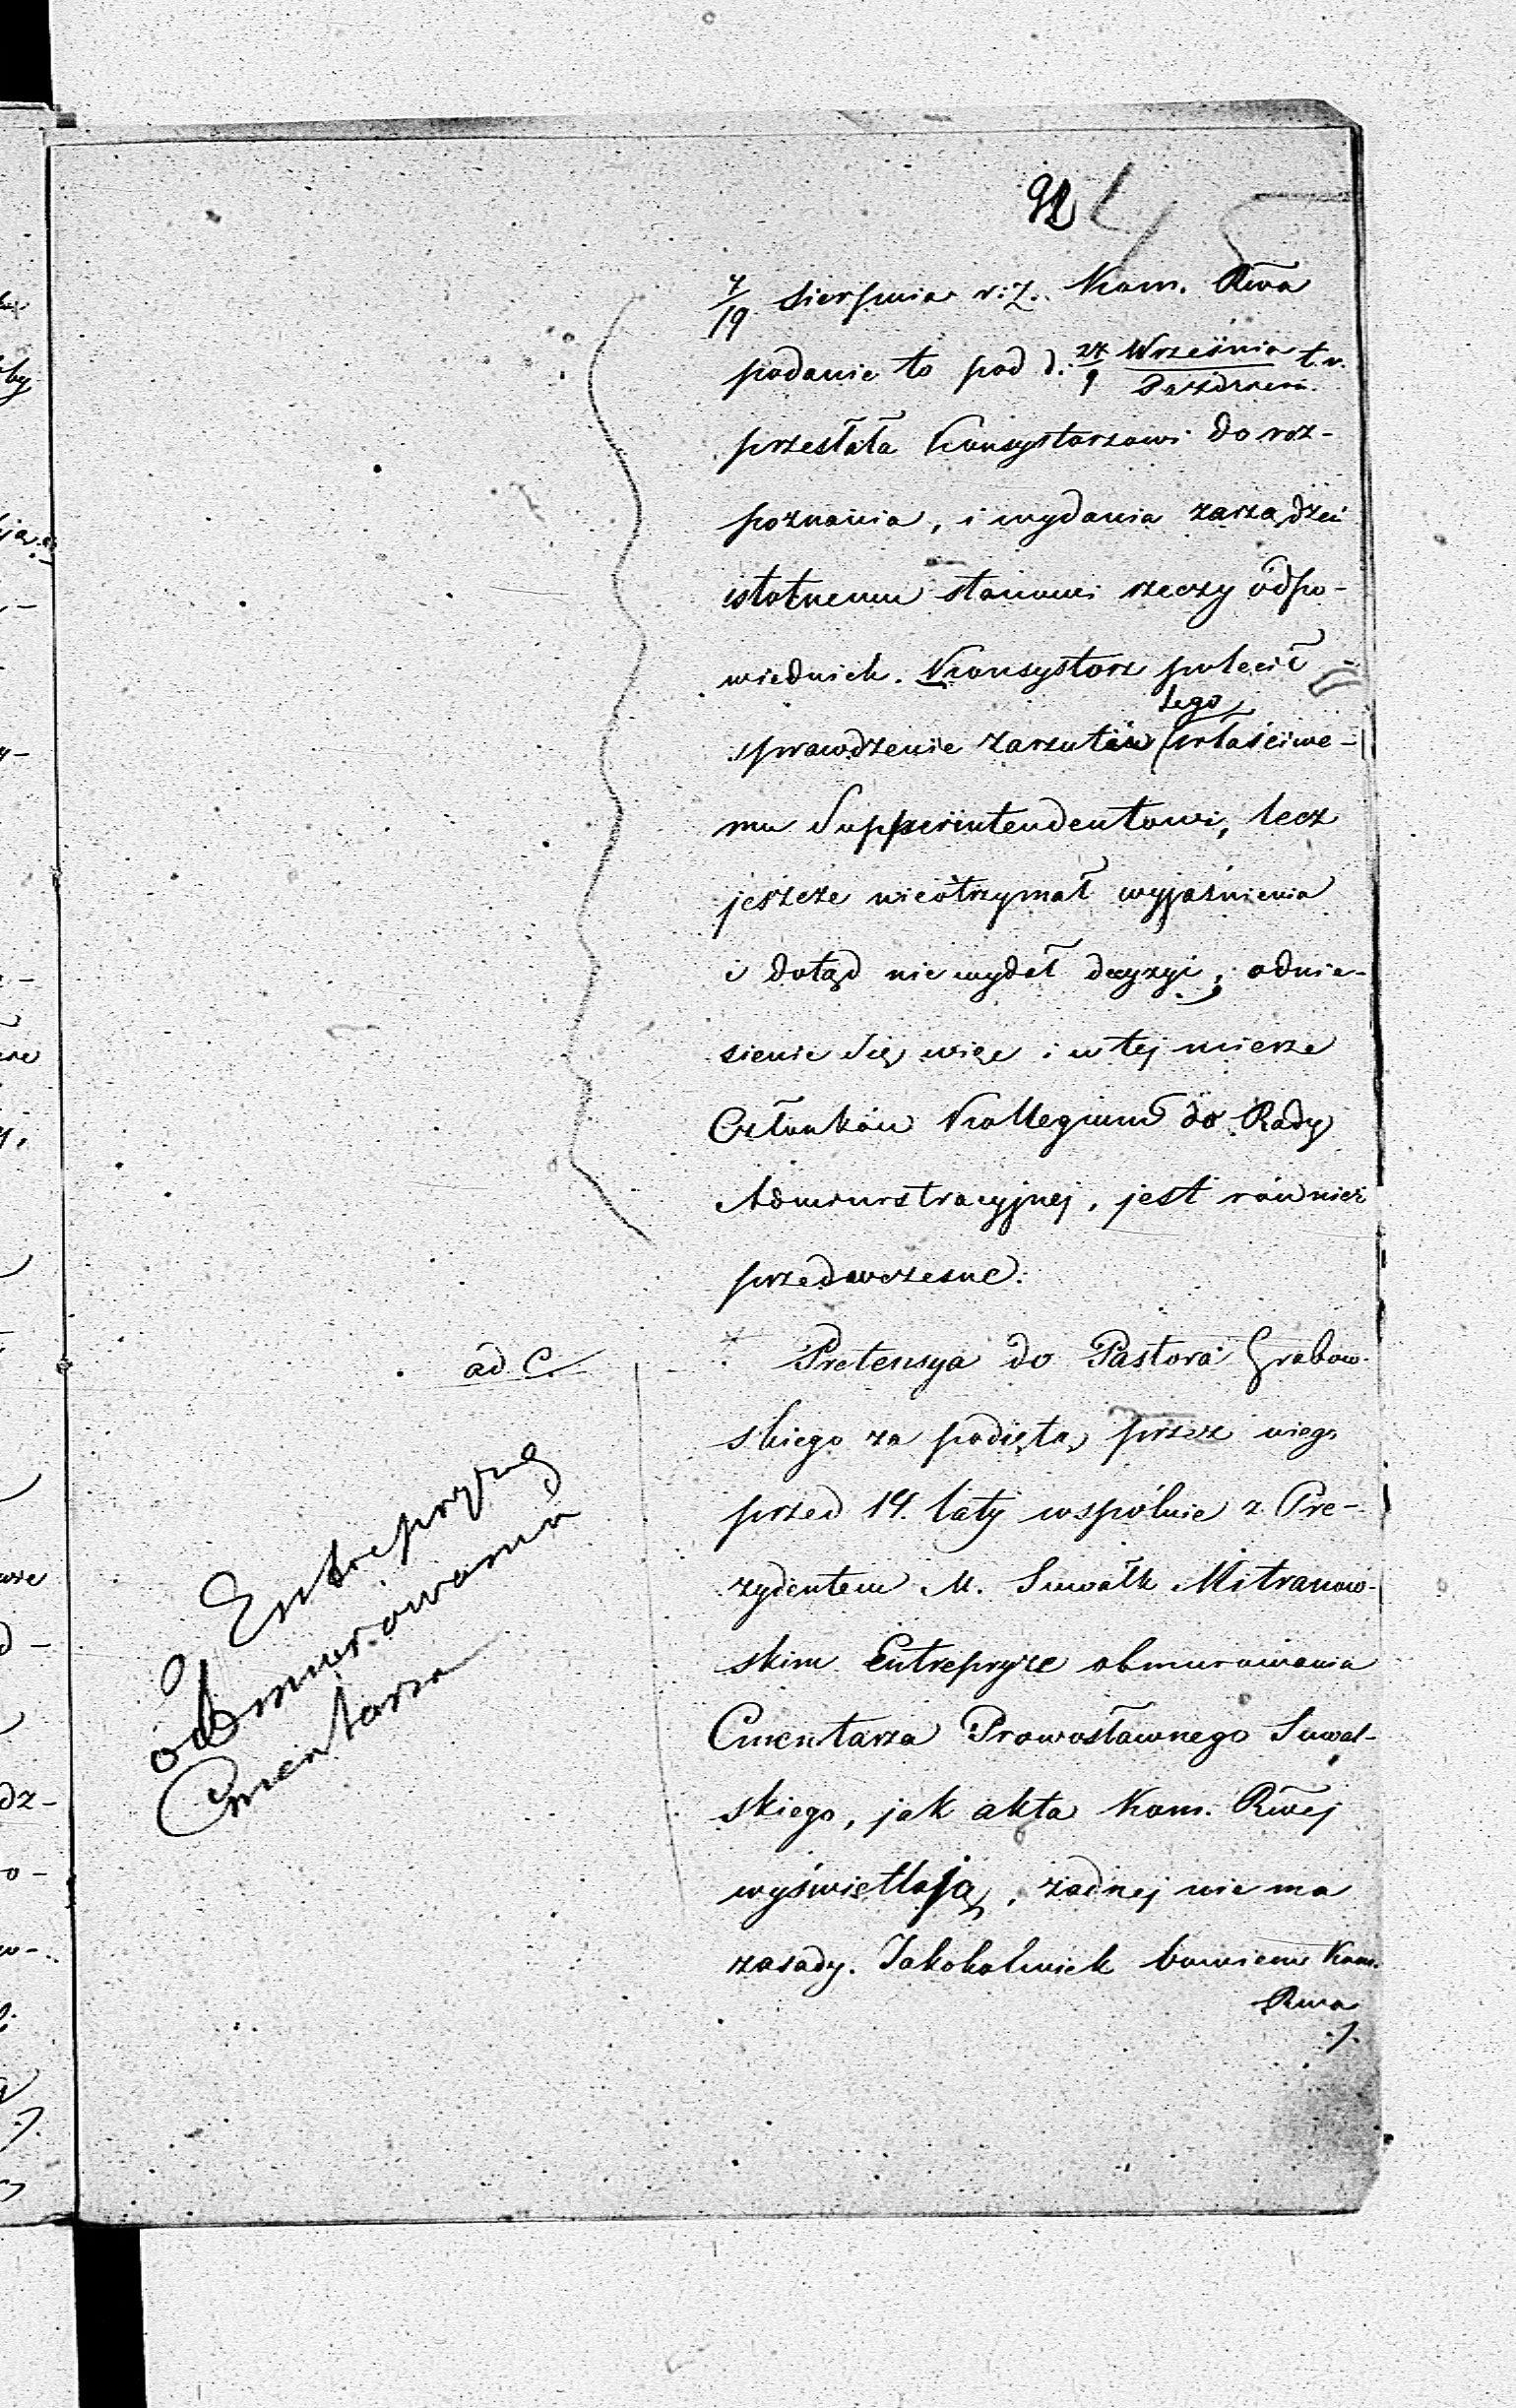 92
7/19 Sierpnia r. z. Kom. Rwa
podanie to pod d. 27 Września / 9 Październ. t. r.
przesłała Konsystorzowi do roz-
poznania, i wydania zarządzeń
istotnemu stanowi rzeczy odpo-
wiednich. Konsystorz polecił
sprawdzenie zarzutów tego właściwe-
mu Supperintendentowi, lecz
jeszcze nieotrzymał wyjaśnienia
i dotąd nie wydał decyzyi; odnie-
sienie się więc i w tej mierze
Członków Kollegium do Rady
Administracyjnej, jest również
przedwczesne.
ad C.
Pretensya do Pastora Grabow-
skiego za podiętą przez niego
przed 14. laty wspólnie z Pre-
zydentem M. Suwałk Mitranow-
skim Entrepryze obmurowania
Cmentarza Prawosławnego Suwal-
skiego, jak akta Kom. Rwej
wyświetlają, żadnej nie ma
zasady. Jakokolwiek bowiem Kom.
Rwa
./.
Entrepryzę
obmurowania
Cmentarza